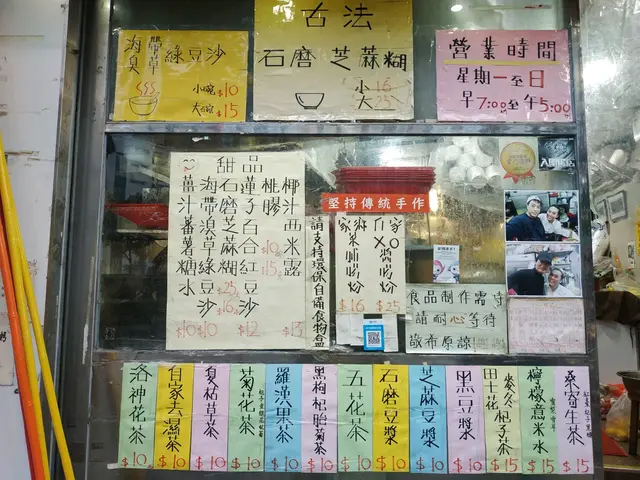 海帶臭草綠豆沙
小碗$10
大碗$15
古法
石磨芝蔴糊
小16
大25
營業時間
星期一至日
早7:00至午5:00
甜品
椰汁西米露
$13
桃膠
$10
$15
蓮子百合紅豆沙
$12
石磨芝蔴糊
$25
$16
海帶溴草綠豆沙
$10
薑汁蕃薯糖水
$10
堅持傳統手作
請支持環保自備食物盒
家鄉菜脯捞粉
$16
家〇爪乂酱捞粉
$25
食品制作需寺
請耐心等待
敬布原諒
洛神花茶
$10
自家去濕茶
$10
夏枯草茶
$10
菊花茶
$10
羅漢果茶
$10
黑枸杞胎菊茶
$10
五花茶
$10
石磨豆漿
$10
芝蔴豆漿
$10
黑豆漿
$10
$15
檸檬薏米水
$15
桑寄生茶
$15